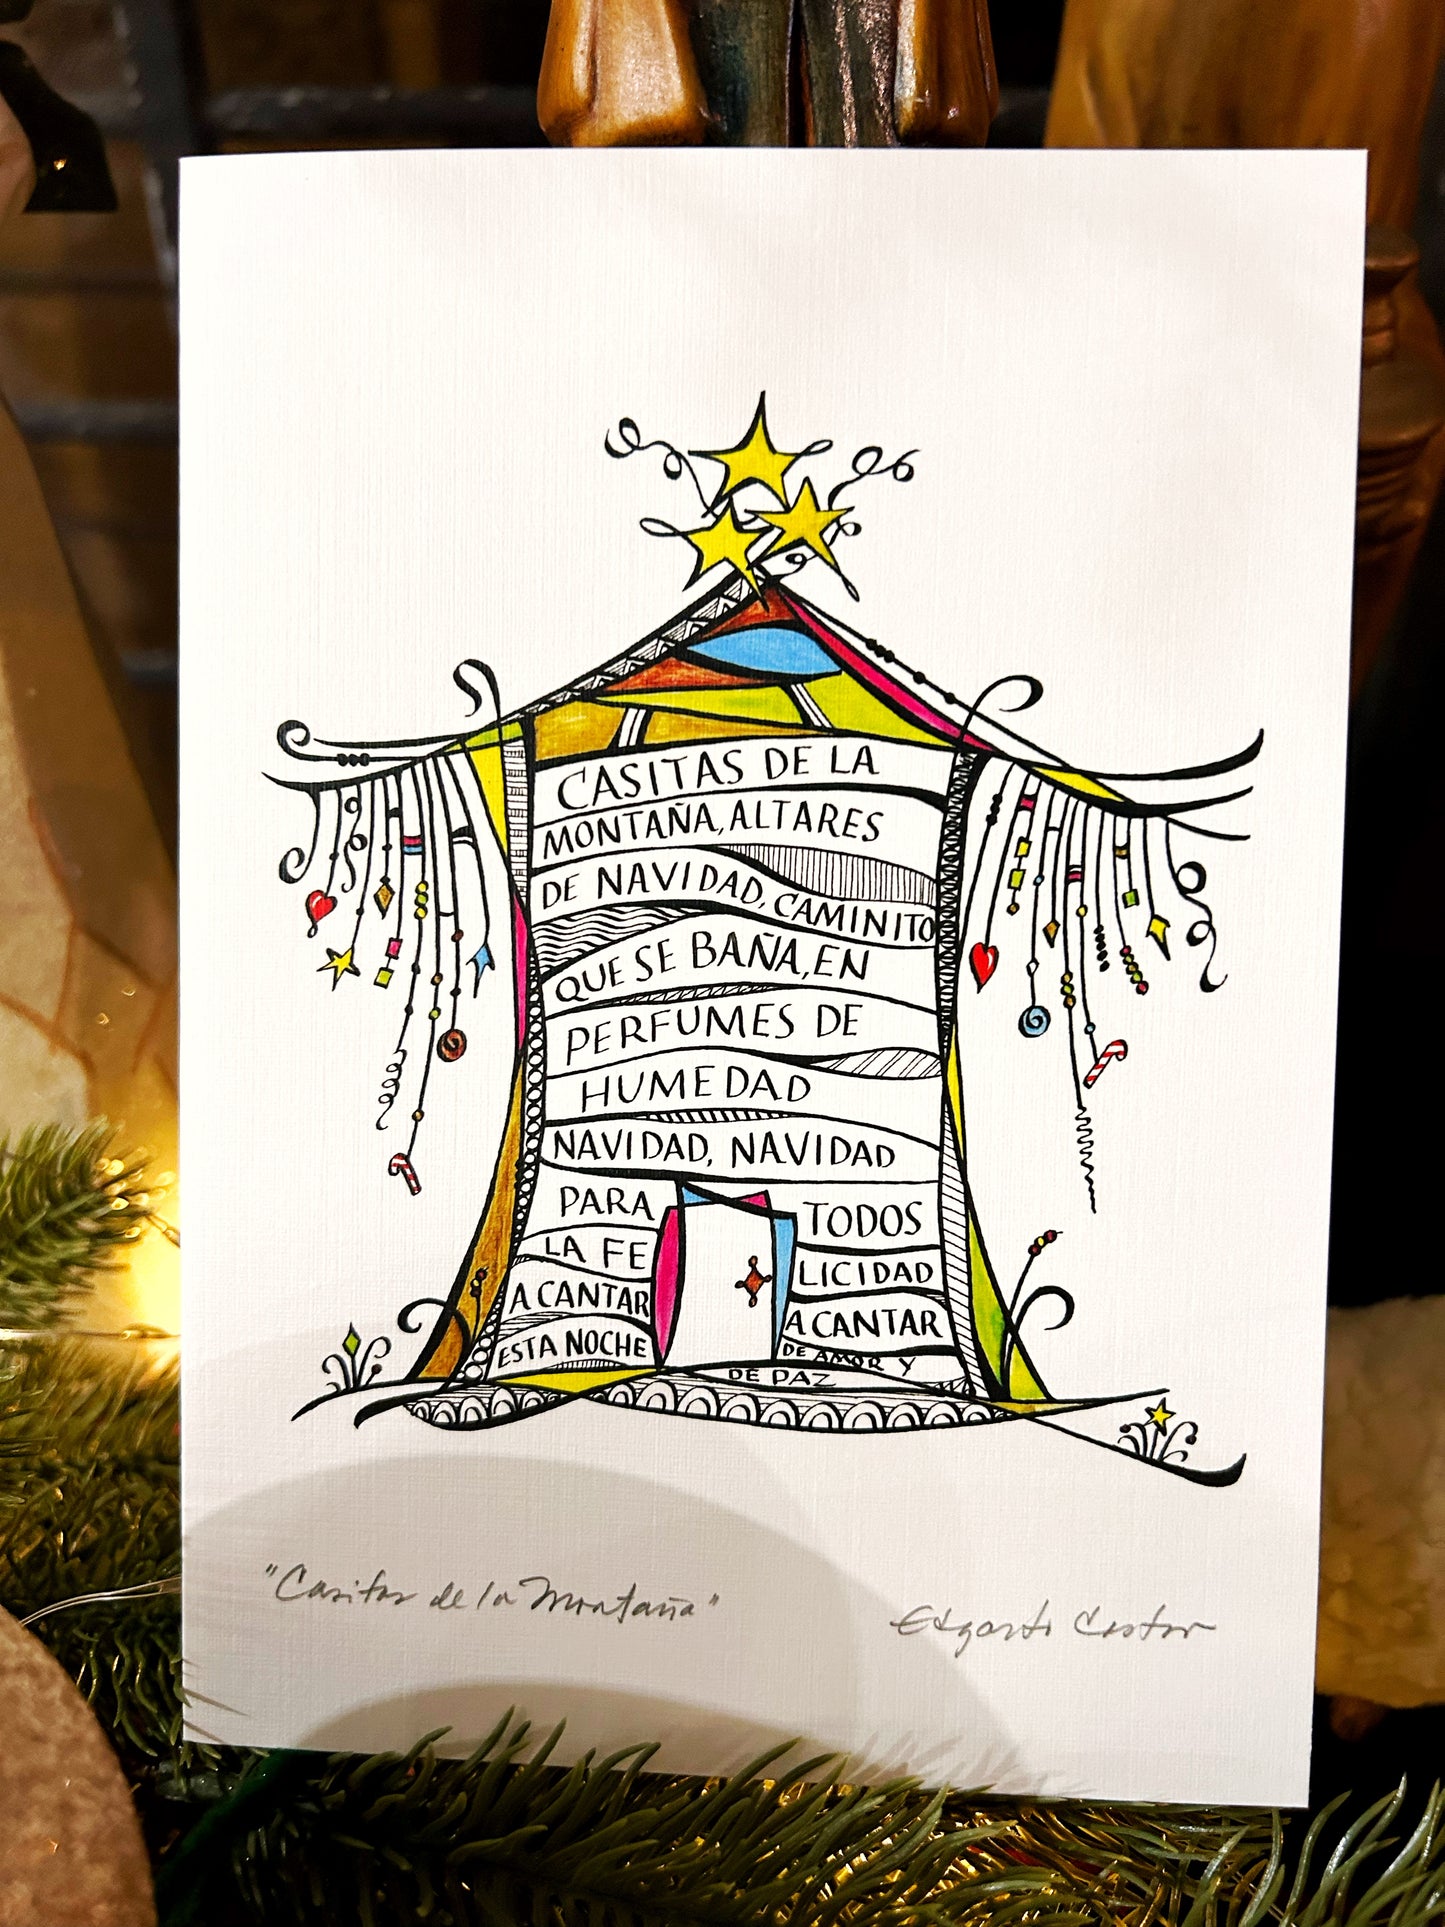 CASITAS DE LA
MONTAÑA, ALTARES
DE NAVIDAD, CAMINITO
QUE SE BAÑA, EN
PERFUMES DE
HUMEDAD
NAVIDAD, NAVIDAD
PARA TODOS
LA FE LICIDAD
A CANTAR A CANTAR
ESTA NOCHE DE AMOR Y
DE PAZ
"Casitas de la Montaña"
Edgardo Castor